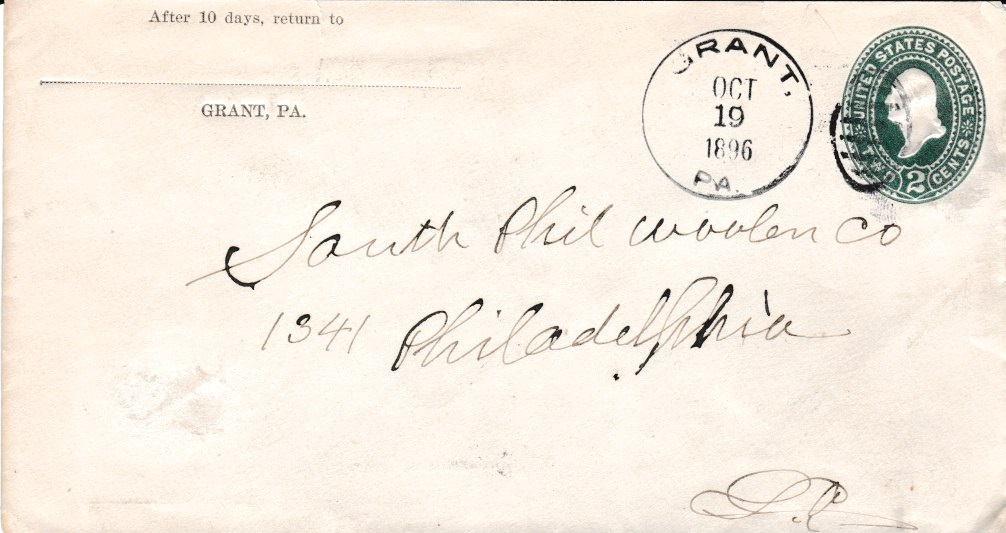 After 10 days, return to
GRANT, PA.
GRANT,
OCT
19
1896
PA.
UNITED STATES POSTAGE
TWO 2 CENTS
South Phil woolen co
1341 Philadelphia